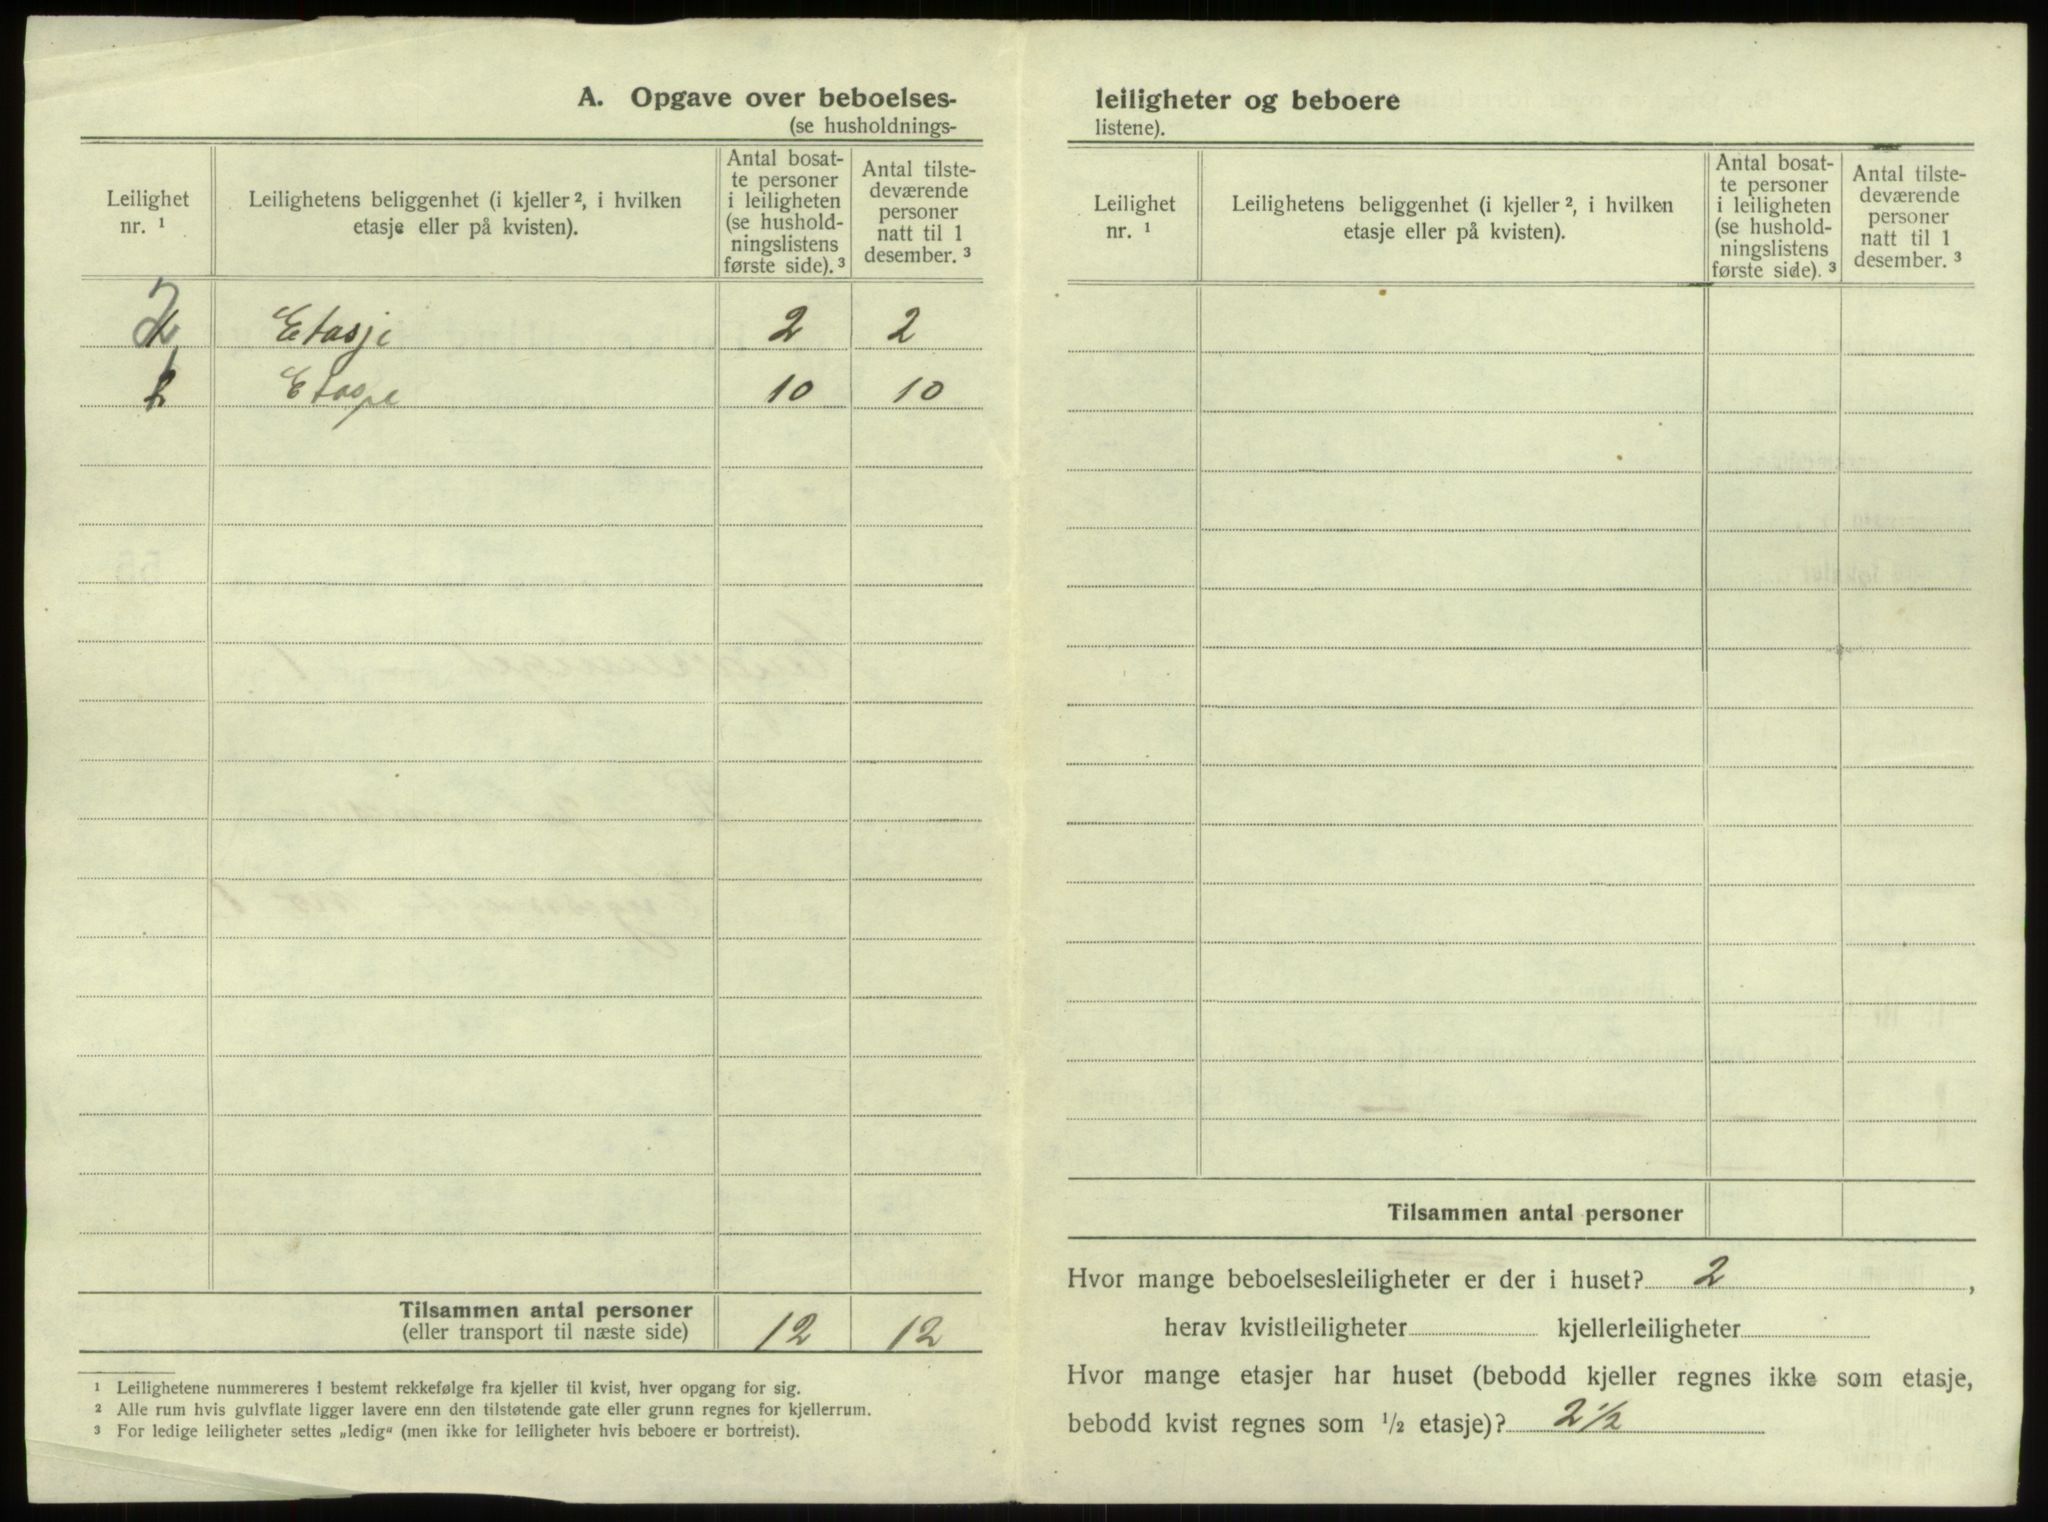 A. Opgave over beboelses-
(se husholdnings-
Leilighet nr. ¹
Leilighetens beliggenhet (i kjeller ², i hvilken etasje eller på kvisten).
Antal bosat-
te personer
i leiligheten
(se hushold-
ningslistens
første side). ³
Antal tilste-
deværende
personer
natt til 1
desember. ³
2 Etasje 2 2
1 Etasje 10 10
Tilsammen antal personer 12 12
(eller transport til næste side)
¹ Leilighetene nummereres i bestemt rekkefølge fra kjeller til kvist, hver opgang for sig.
² Alle rum hvis gulvflate ligger lavere enn den tilstøtende gate eller grunn regnes for kjellerrum.
³ For ledige leiligheter settes „ledig“ (men ikke for leiligheter hvis beboere er bortreist).
leiligheter og beboere
listene).
Leilighet nr. ¹
Leilighetens beliggenhet (i kjeller ², i hvilken etasje eller på kvisten).
Antal bosat-
te personer
i leiligheten
(se hushold-
ningslistens
første side). ³
Antal tilste-
deværende
personer
natt til 1
desember. ³
Tilsammen antal personer
Hvor mange beboelsesleiligheter er der i huset? 2,
herav kvistleiligheter kjellerleiligheter
Hvor mange etasjer har huset (bebodd kjeller regnes ikke som etasje,
bebodd kvist regnes som ½ etasje)? 2 ½